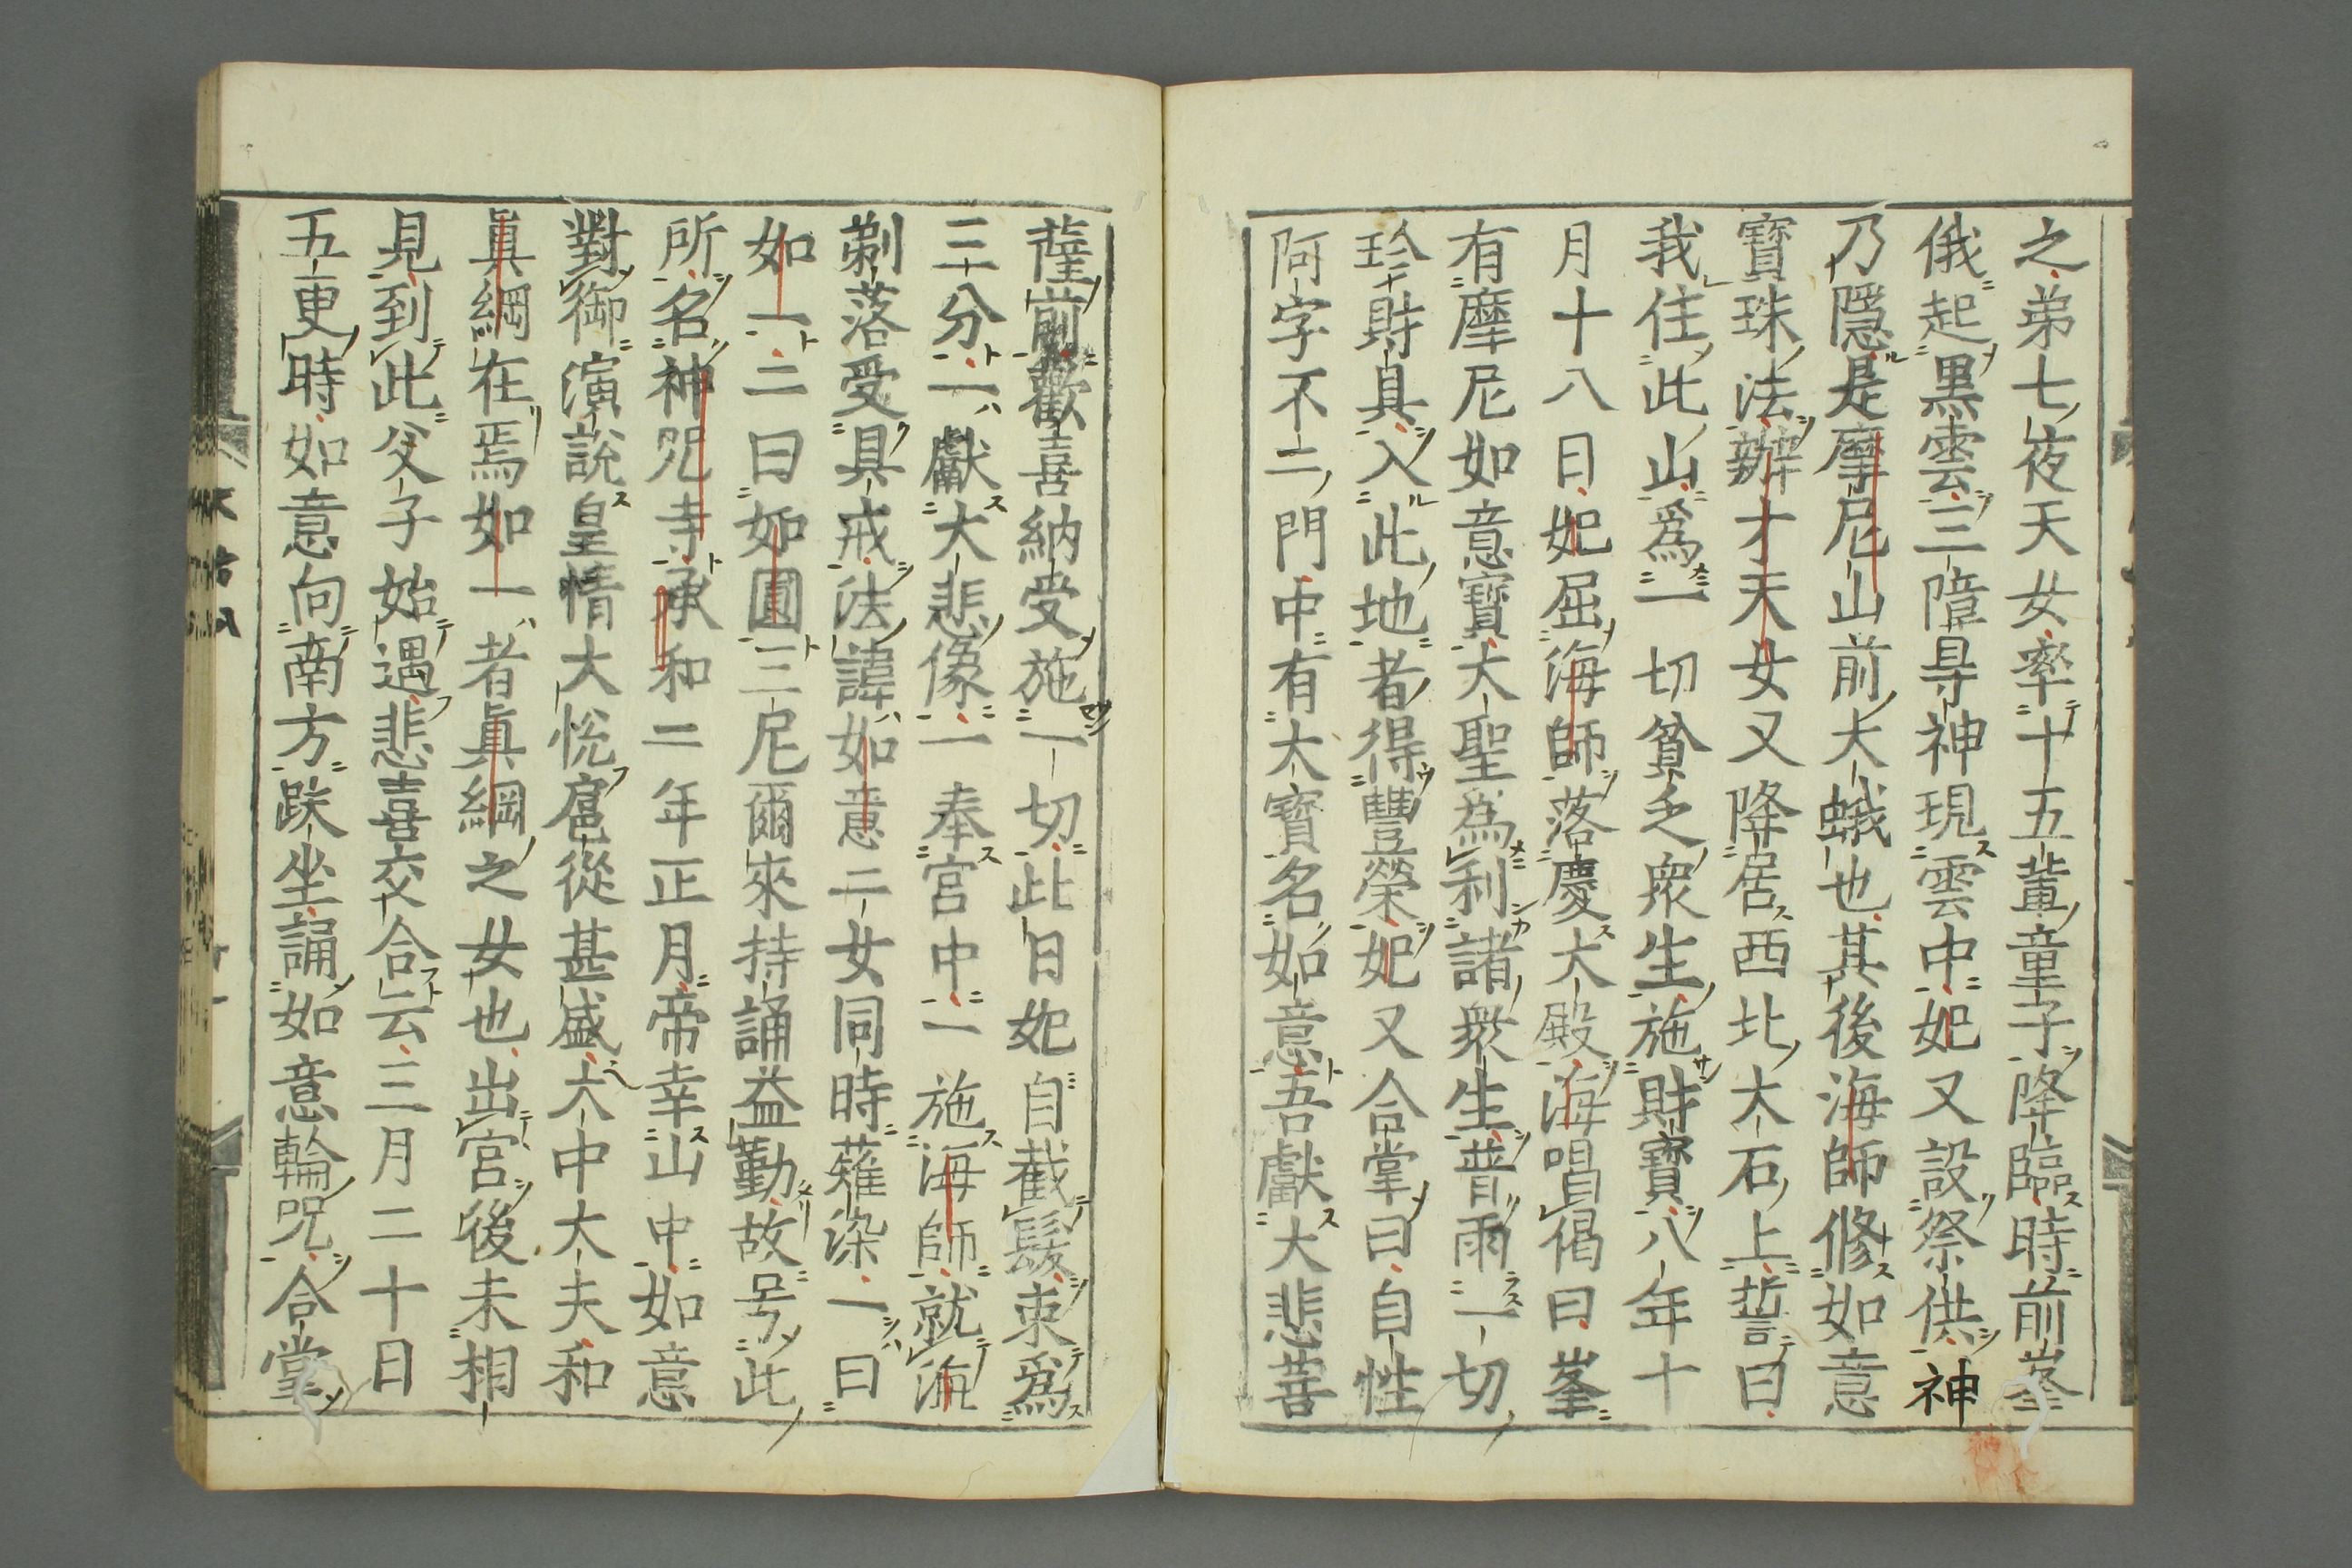 之弟七夜天女率十五軰童子降臨時前峯
俄起黒雲三障㝵神現雲中妃又設祭供神
乃隱是摩尼山前大蛾也其後海師修如意
寳珠法辨才天女又降居西北大石上誓曰
我住此山爲一切貧乏衆生施財寳八年十
月十八日妃屈海師落慶大殿海唱偈曰峯
有摩尼如意寳大聖爲利諸衆生普雨一切
珍財具入此地者得豐榮妃又合掌曰自性
阿字不二門中有大寳名如意吾獻大悲菩
薩前歡喜納受施一切此日妃自截髮束爲
三分一獻大悲像一奉宮中一施海師就海
剃落受具戒法諱如意二女同時薙染一曰
如一二曰如圓三尼爾來持誦益勤故号此
所名神咒寺承和二年正月帝幸山中如意
對御演説皇情大悦扈從甚盛大中大夫和
眞綱在焉如一者眞綱之女也出宮後未相
見到此父子始遇悲喜交合云三月二十日
五更時如意向南方趺坐誦如意輪咒合掌